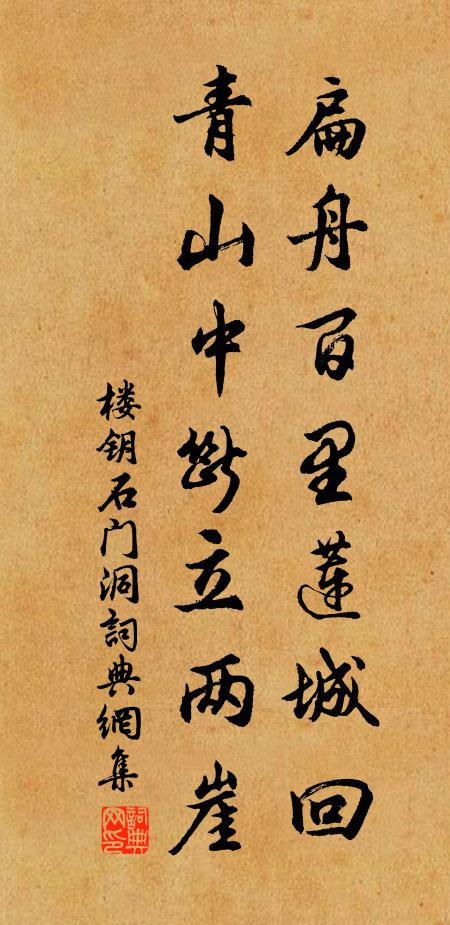 扁舟百里莲城回
青山中断立两崖
楼钥石门洞詞典網集
詞典網印